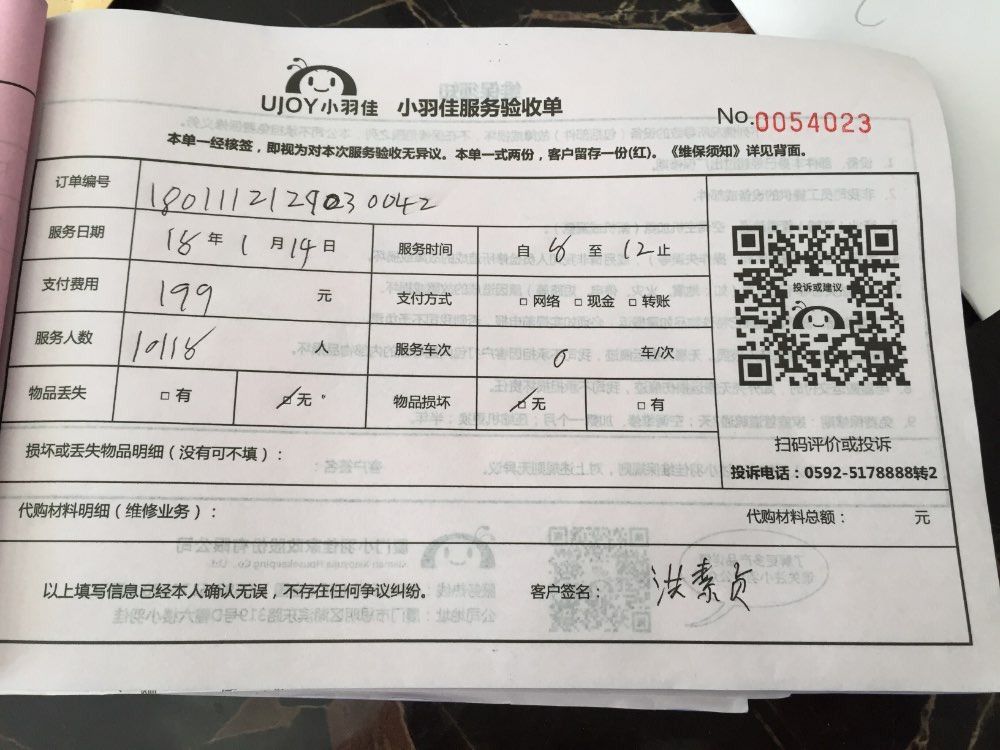 UJOY小羽佳 小羽佳服务验收单
No.0054023
本单一经核签，即视为对本次服务验收无异议。本单一式两份，客户留存一份(红)。《维保须知》详见背面。
订单编号 180111212903 0042
服务日期 18 年 1 月 14 日 服务时间 自 8 至 12 止
支付费用 199 元 支付方式 □ 网络 □ 现金 □ 转账
服务人数 人 服务车次 0 车/次
物品丢失 □ 有 □ 无 物品损坏 □ 无 □ 有
投诉或建议
扫码评价或投诉
投诉电话：0592-5178888转2
损坏或丢失物品明细（没有可不填）：
代购材料明细（维修业务）： 代购材料总额： 元
以上填写信息已经本人确认无误，不存在任何争议纠纷。 客户签名： 洪素贞